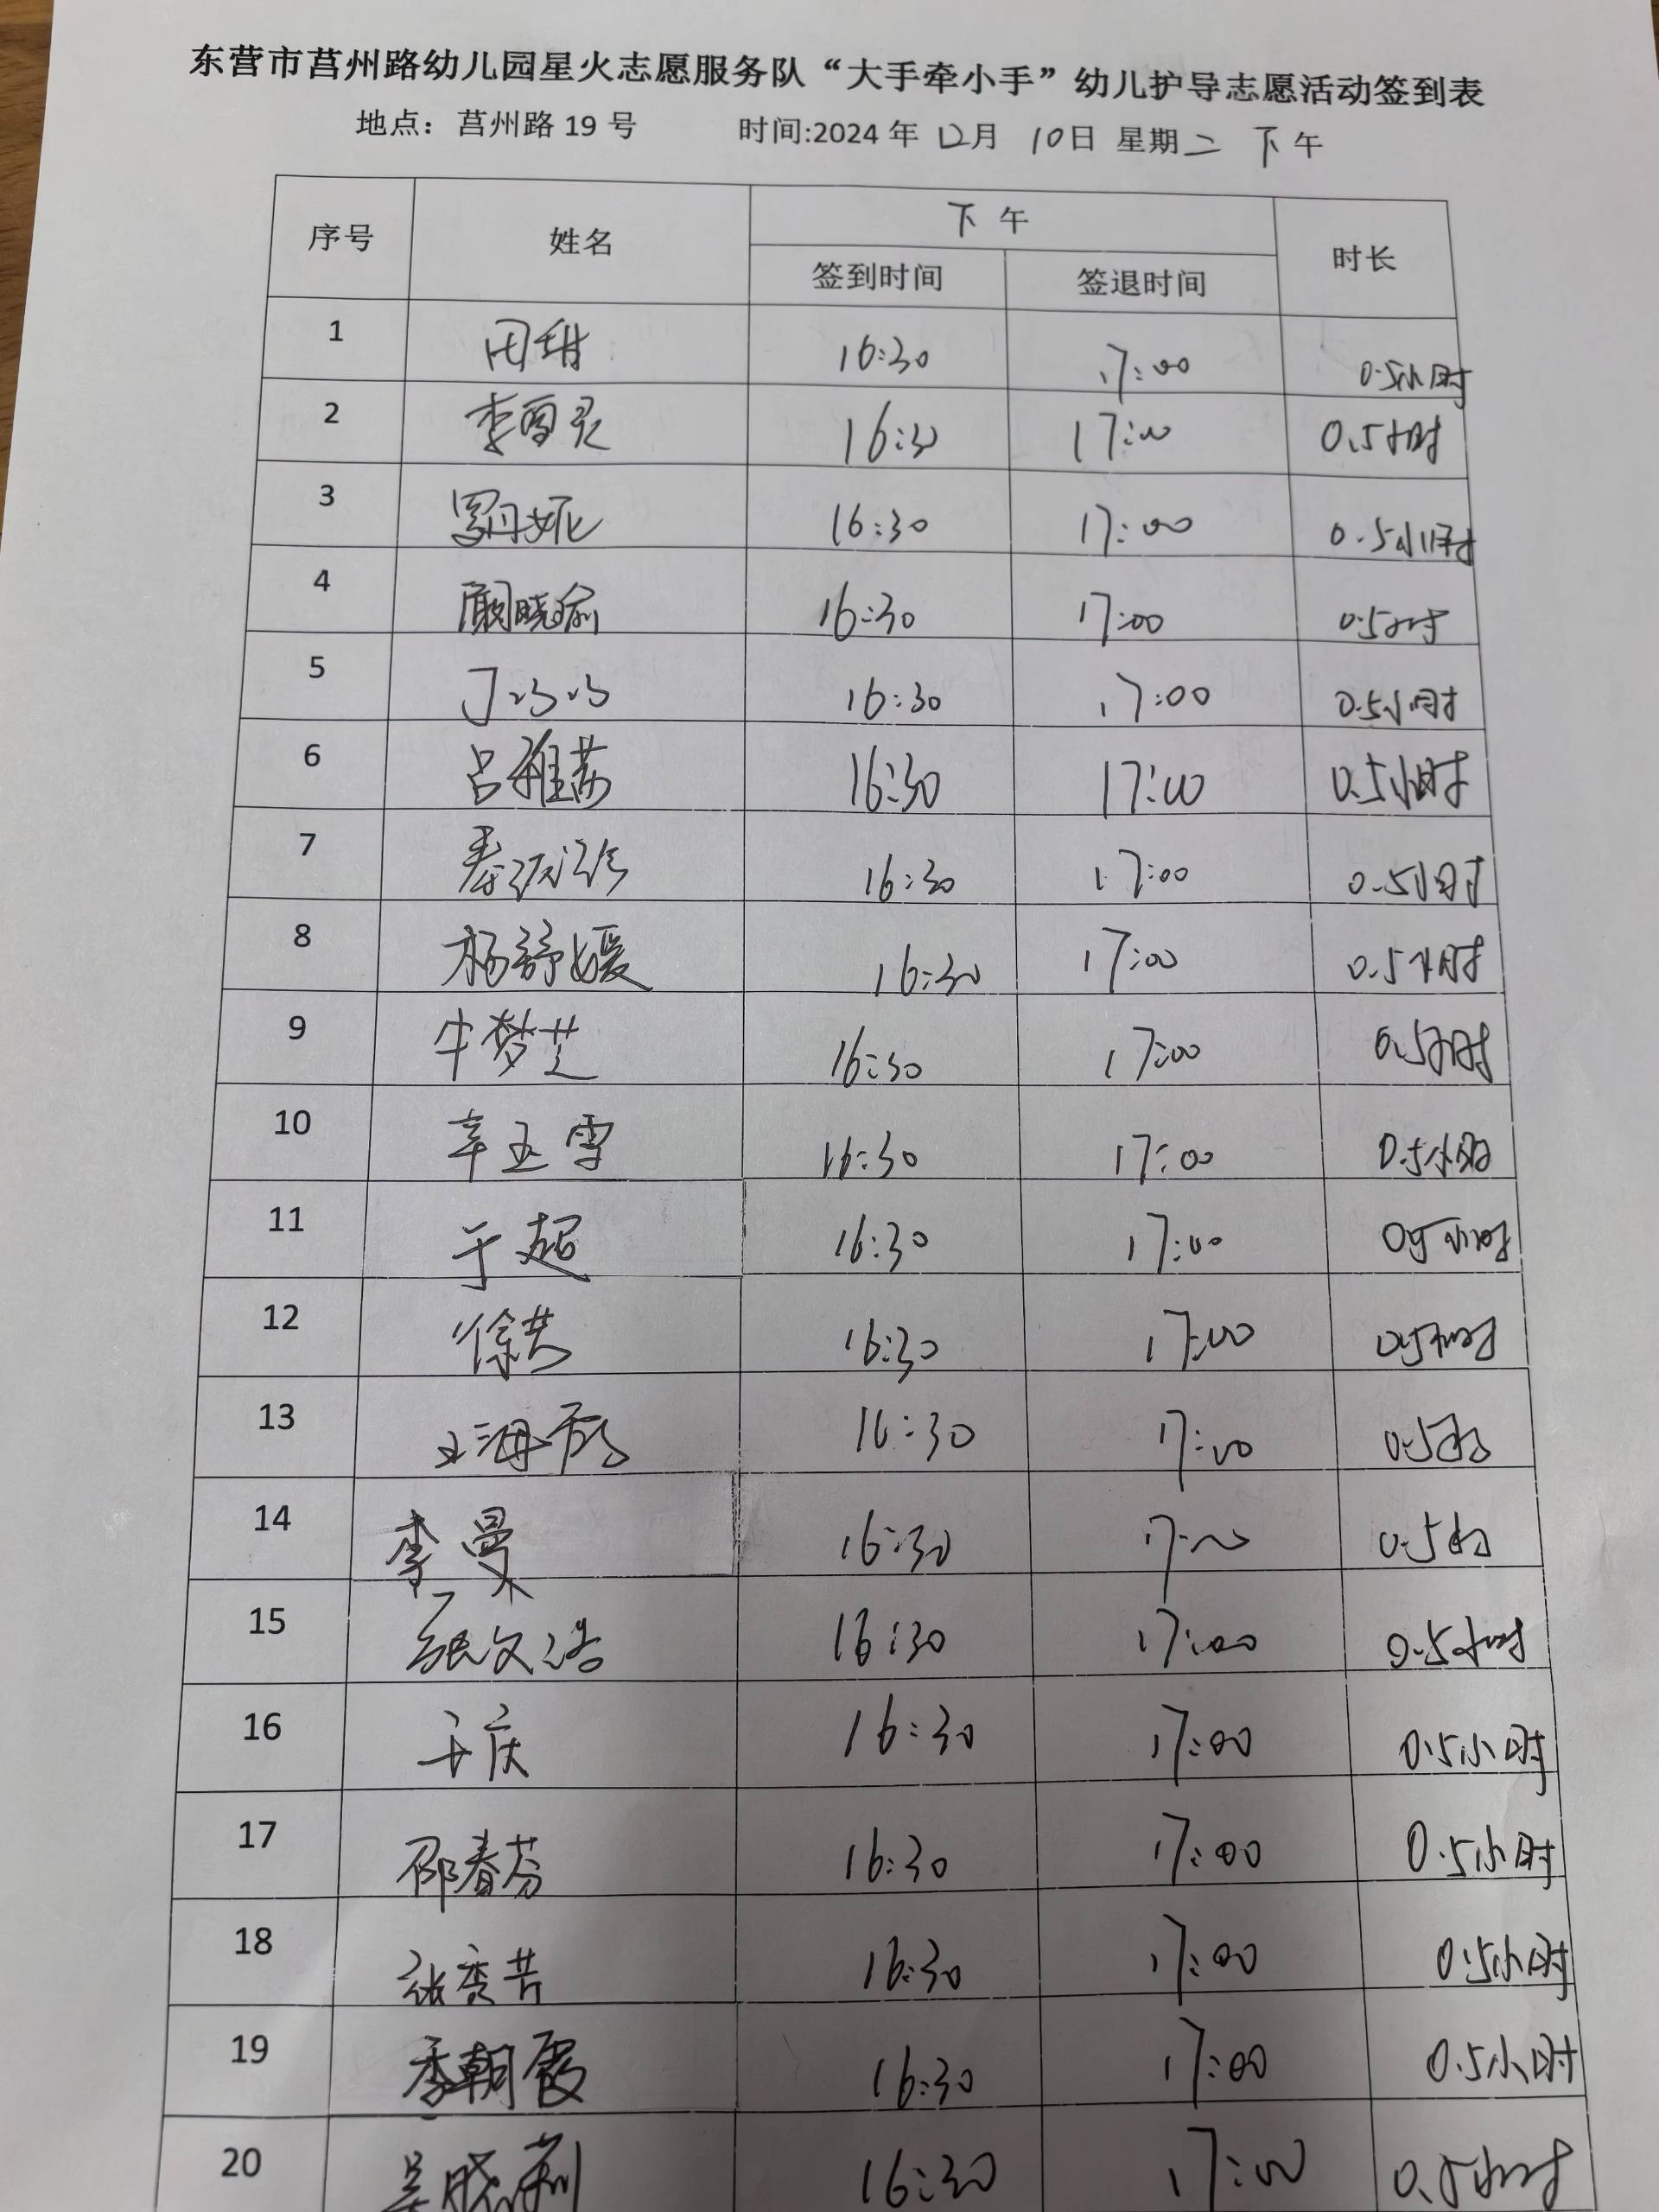 东营市莒州路幼儿园星火志愿服务队“大手牵小手”幼儿护导志愿活动签到表
地点：莒州路 19 号 时间:2024 年 12月 10日 星期二 下午
序号 姓名 下午 时长
签到时间 签退时间
1 田甜 16:30 17:00 0.5小时
2 李雪灵 16:30 17:00 0.5小时
3 罗丹妮 16:30 17:00 0.5小时
4 顾晓瑜 16:30 17:00 0.5小时
5 丁 16:30 17:00 0.5小时
6 吕雅茜 16:30 17:00 0.5小时
7 秦 16:30 17:00 0.5小时
8 杨舒媛 16:30 17:00 0.5小时
9 牛梦芝 16:30 17:00 0.5小时
10 辛玉雪 16:30 17:00 0.5小时
11 于超 16:30 17:00 0.5小时
12 徐 16:30 17:00 0.5小时
13 王海 16:30 17:00 0.5小时
14 李曼 16:30 17:00 0.5小时
15 张文洁 16:30 17:00 0.5小时
16 于庆 16:30 17:00 0.5小时
17 邵春芬 16:30 17:00 0.5小时
18 张秀芹 16:30 17:00 0.5小时
19 季朝霞 16:30 17:00 0.5小时
20 吴晓莉 16:30 17:00 0.5小时